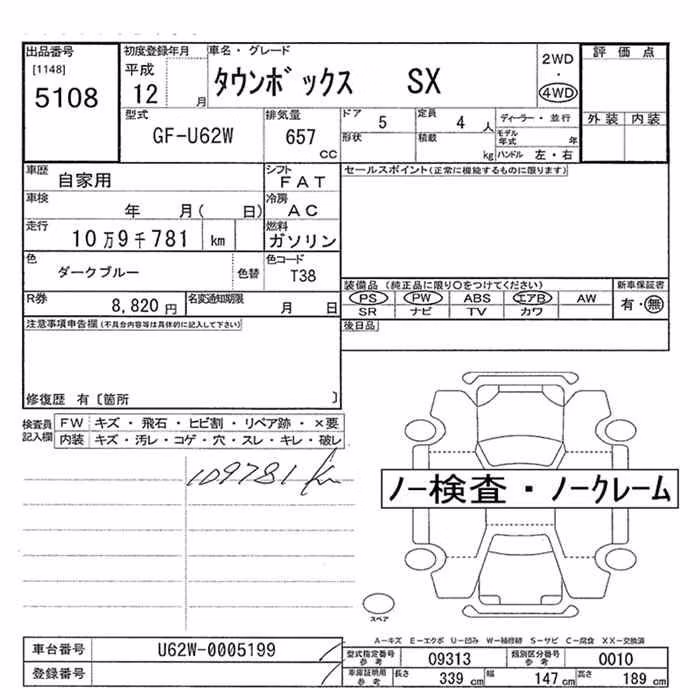 出品番号
[1148]
5108
初度登録年月
平成
12 月
車名・グレード
タウンボックス SX
2WD
・
4WD
評価点
外装 内装
型式
GF-U62W
排気量
657
cc
ドア 5
形状
定員 4 人
積載 kg
ディーラー・並行
モデル年式 年
ハンドル 左・右
車歴
自家用
シフト
FAT
車検
年 月( 日)
冷房
AC
走行
10万9千781 km
燃料
ガソリン
色
ダークブルー
色替
色コード
T38
R券
8,820 円
名変通知期限
月 日
セールスポイント(正常に機能するものに限ります)
装備品 (純正品に限り○をつけてください)
PS PW ABS エアB AW
SR ナビ TV カワ
新車保証書
有・無
後日品
注意事項申告欄(不具合内容等は具体的に記入して下さい)
修復歴 有〔箇所 〕
検査員記入欄
FW キズ・飛石・ヒビ割・リペア跡・×要
内装 キズ・汚レ・コゲ・穴・スレ・キレ・破レ
109781 km
ノー検査・ノークレーム
スペア
A-キズ E-エクボ U-凹み W-補修跡 S-サビ C-腐食 XX-交換済
車台番号 U62W-0005199
登録番号
型式指定番号参考 09313
類別区分番号参考 0010
車庫証明用参考 長さ 339 cm 幅 147 cm 高さ 189 cm